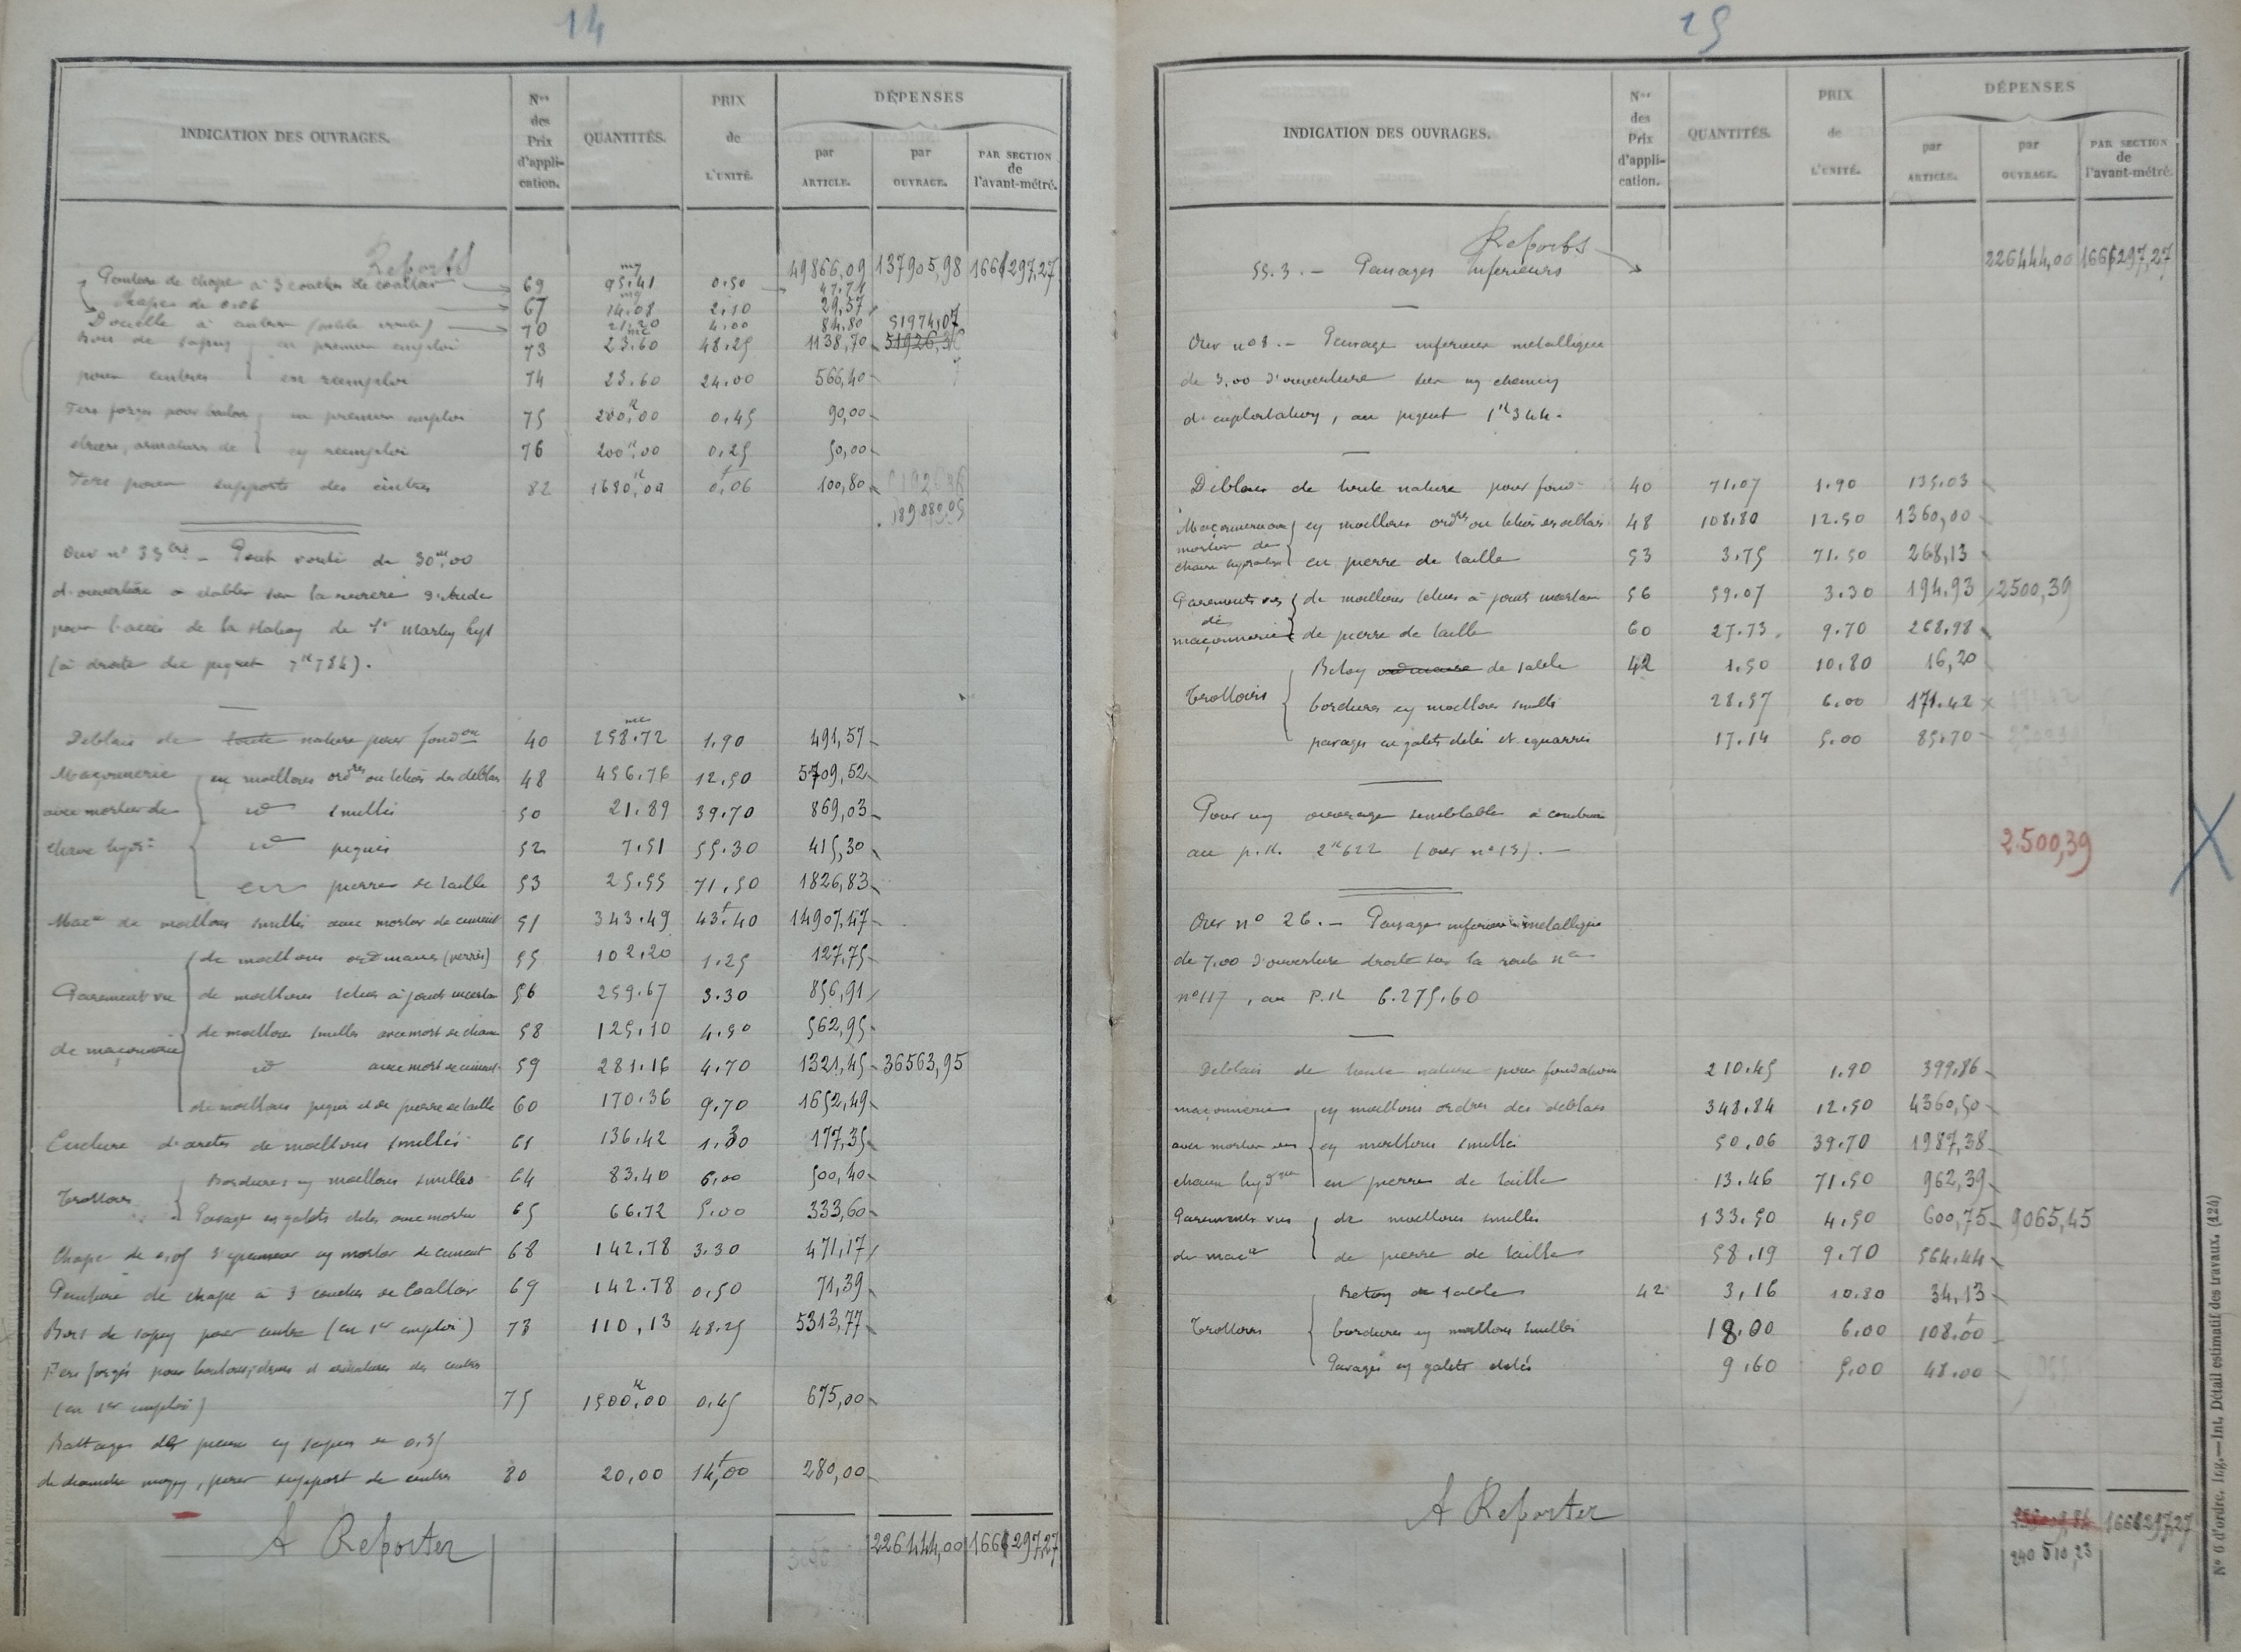 14
INDICATION DES OUVRAGES.
Nos des Prix d'appli-cation.
QUANTITÉS.
PRIX de L'UNITÉ.
DÉPENSES
par ARTICLE.
par OUVRAGE.
PAR SECTION de l'avant-métré.
Reports 49866,09 137905,98 1666297,27
Peinture de chape à 3 couches de coaltar 69 95.41 0.50 47.71
Chape de 0.06 67 14.08 2.10 29,57
Douelle à 70 21.20 4.00 84.80 51974,07
Bois de sapin en premier emploi 73 23.60 48.25 1138,70 51926,36
pour cintres en reemploi 74 23.60 24.00 566,40
Fers forgés pour boulons en premier emploi 75 200k,00 0.45 90,00
étriers, armatures de en reemploi 76 200k,00 0.25 50,00
Fers pour supports des cintres 82 1680k,00 0f,06 100,80
189880,05
Ouv n° 33 - Pont voûté de 30m,00
d'ouverture à établir sur la rivière d'Aude
pour l'accès de la station de St Martin Lys
(à droite du piquet 7k784).
Déblais de toute nature pour fondon 40 258.72 1.90 491,57
Maçonnerie en moellons ordres ou tétués des déblais 48 456.76 12.50 5709,52
avec mortier de id smillés 50 21.89 39.70 869,03
chaux hydr: id piqués 52 7.51 55.30 415,30
en pierre de taille 53 25.55 71.50 1826,83
Macie de moellons smillés avec mortier de ciment 51 343.49 43f.40 14907,47
de moellons ordinaires (perrés) 55 102.20 1.25 127,75
Parement vu de moellons tétués à joints incertains 56 259.67 3.30 856,91
de moellons smillés avec mort de chaux 58 125.10 4.50 562,95
de maçonnerie id avec mort de ciment 59 281.16 4.70 1321,45 36563,95
de moellons piqués et de pierre de taille 60 170.36 9.70 1652,49
d'arêtes de moellons smillés 61 136.42 1.30 177,35
Trottoirs Bordures en moellons smillés 64 83.40 6,00 500,40
Pavage en galets étêtés avec mortier 65 66.72 5.00 333,60
Chape de 0,05 d'épaisseur en mortier de ciment 68 142.78 3.30 471,17
Peinture de chape à 3 couches de Coaltar 69 142.78 0.50 71,39
Bois de sapin pour cintre (en 1er emploi) 73 110,13 48.25 5313,77
Fers forgés pour boulons, étriers et armatures des cintres
(en 1er emploi) 75 1500k,00 0.45 675,00
Battages des pieux en sapin de 0.35
de diamètre moyen, pour support de cintres 80 20,00 14f,00 280,00
A Reporter 226444,00 1666297,27
25
INDICATION DES OUVRAGES.
Nos des Prix d'appli-cation.
QUANTITÉS.
PRIX de L'UNITÉ.
DÉPENSES
par ARTICLE.
par OUVRAGE.
PAR SECTION de l'avant-métré.
Reports 226444,00 1666297,27
§§.3. - Passages Inférieurs
Ouv n°8. - Passage inférieur métallique
de 3.00 d'ouverture sur un chemin
d'exploitation, au piquet 1k344.
Déblais de toute nature pour fond 40 71.07 1.90 135.03
Maçonnerie avec en moellons ordres ou tétués des déblais 48 108.80 12.50 1360,00
mortier de chaux hydraulique en pierre de taille 53 3.75 71.50 268,13
Parements vus de moellons tétués à joints incertains 56 59.07 3.30 194.93 2500,39
de maçonnerie de pierre de taille 60 27.73 9.70 268.98
Beton ordinaire de sable 42 1.50 10.80 16,20
Trottoirs bordures en moellons smillés 28.57 6.00 171.42
pavages en galets étêtés et équarris 17.14 5.00 85.70
Pour un ouvrage semblable à construire
au p.k. 2k622 (ouv n°13). 2.500,39
Ouv n° 26. - Passage inférieur métallique
de 7.00 d'ouverture droite sur la route nle
n°117, au P.K 6.275.60
Déblais de toute nature pour fondations 210.45 1.90 399.86
maçonnerie en moellons ordres des déblais 348.84 12.50 4360,50
avec mortier de en moellons smillés 50.06 39.70 1987,38
chaux hydque en pierre de taille 13.46 71.50 962,39
Parements vus de moellons smillés 133.50 4.50 600,75 9065,45
de macie de pierre de taille 58.19 9.70 564.44
Beton de sable 42 3,16 10.80 34,13
Trottoirs bordures en moellons smillés 18.00 6.00 108.00
Pavages en galets étêtés 9.60 5.00 48.00
A Reporter 1666297,27
240 510,23
N° 6 d'ordre. Ing.—Int. Détail estimatif des travaux. (424)